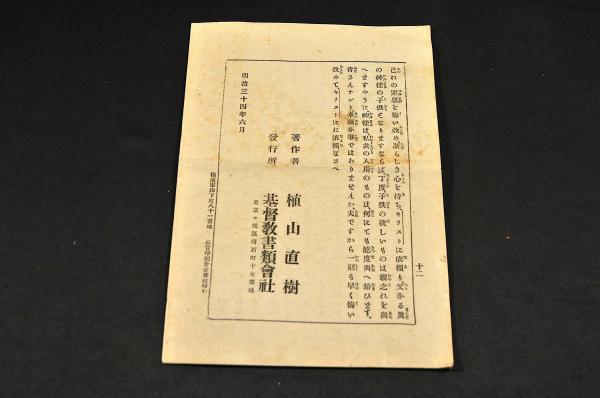 十二
己れの罪惡を悔い改め新らしき心を持ち、キリストに依頼り父なる眞
の神樣の子供となりますならば丁度子供の欲しいものは親之れを與
へますやうに神樣は、私共の入用のものは、何にても能度與へ給ひます、
皆さんナント幸福な事ではありませんか、夫ですから一刻も早く悔い
改めて、キリストにれ依頼なさへ、
明治三十四年六月
著作者 植山直樹
發行所 基督敎書類會社
東京々橋區明石町十七番地
橫濱市山下町八十一番地